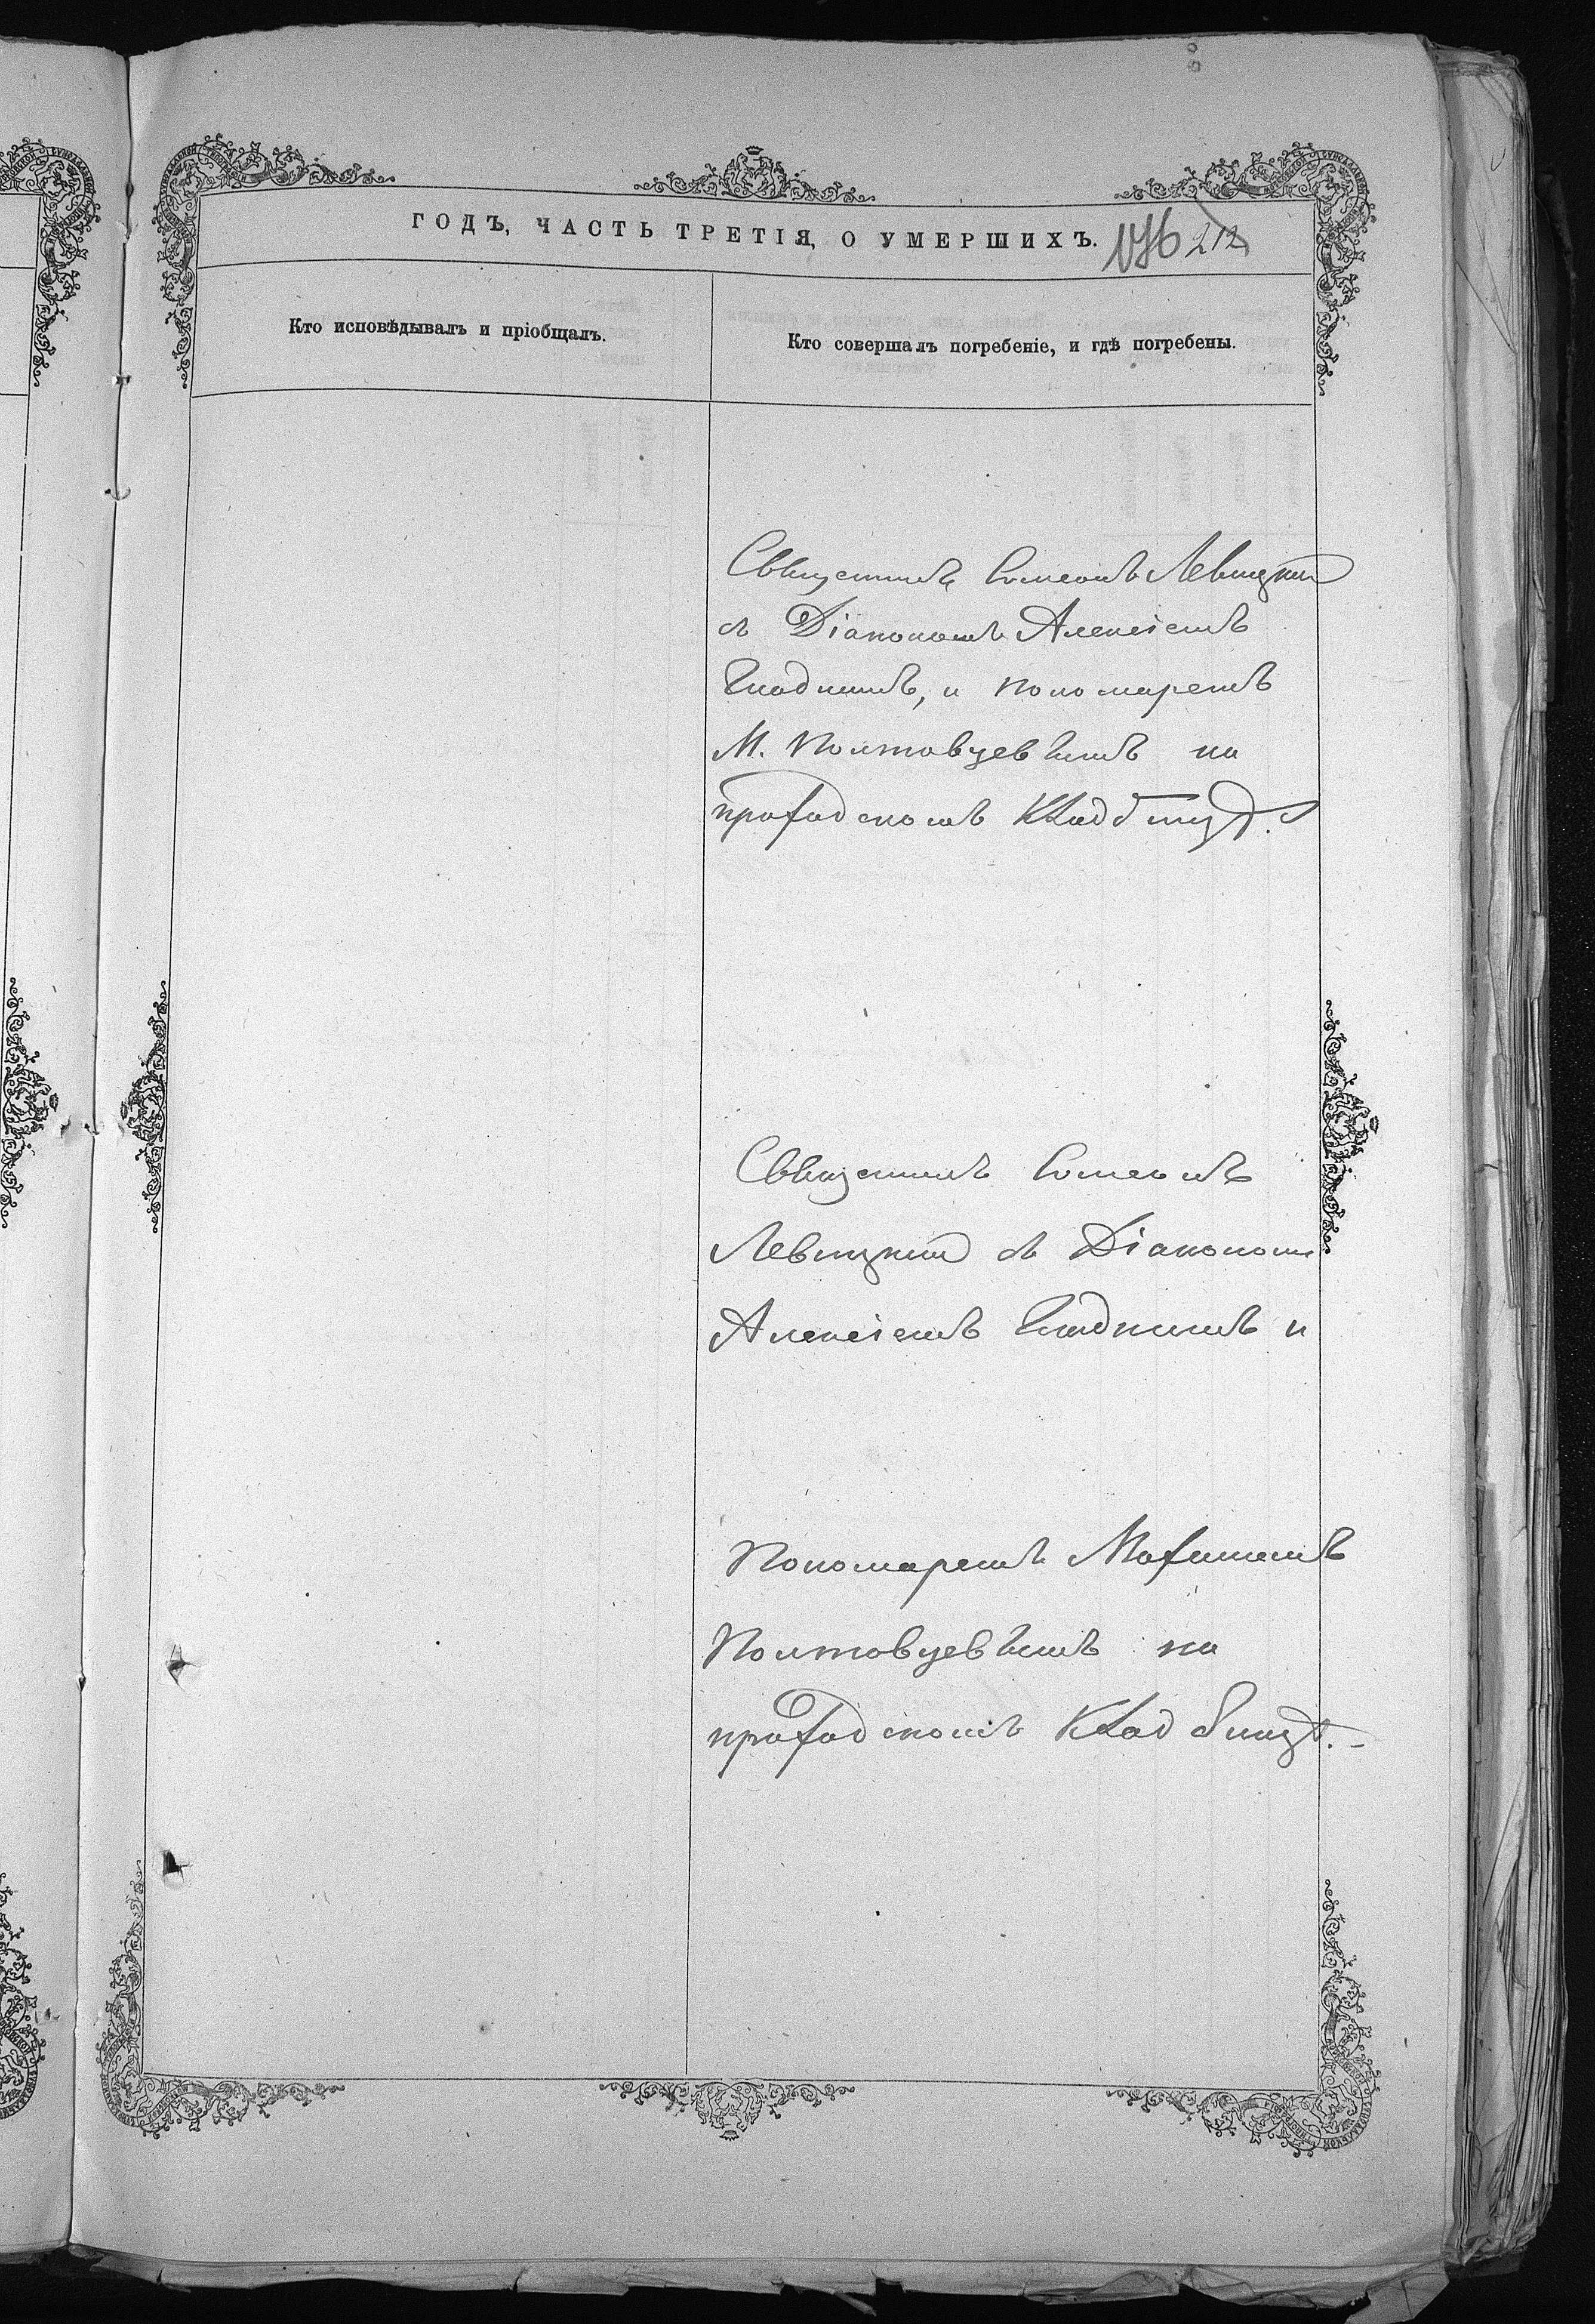 ГОДЪ, ЧАСТЬ ТРЕТІЯ, О УМЕРШИХЪ. 212
Кто исповѣдывалъ и пріобщалъ.
Кто совершалъ погребеніе, и гдѣ погребены.
Священникъ Симеонъ Левицкій
съ Діакономъ Алексіемъ
Гладкимъ, и пономаремъ
М. Полтовцевымъ на
приходскомъ Кладбищѣ.
Священникъ Симеонъ
Левицкій съ Діакономъ
Алексіемъ Гладкимъ и
Пономаремъ Мафтеемъ
Полтовцевымъ на
приходскомъ Кладбищѣ.